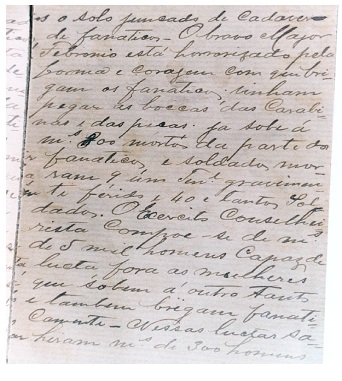 s o solo juncado de cadaver
de fanaticos - O bravo Major
Febronio está horrorizado pela
forma e coragem com que bri
gam os fanaticos; vinham
pegar as boccas das Carabi
nas e das peças. ja sobe á
m.s 800 mortos da parte dos
fanaticos, e soldados mor
ram 9 um Ten.e gravimen
te ferido e 40 e tantos Sol
dados. O Exercito Conselhei
rista Compoe se de m.s
de 5 mil homens Capaz de
lucta fora as mulheres
que sobem a outro tanto
e tambem brigam fanati
camente - Nessas luctas sa
hiram m.s de 300 homens